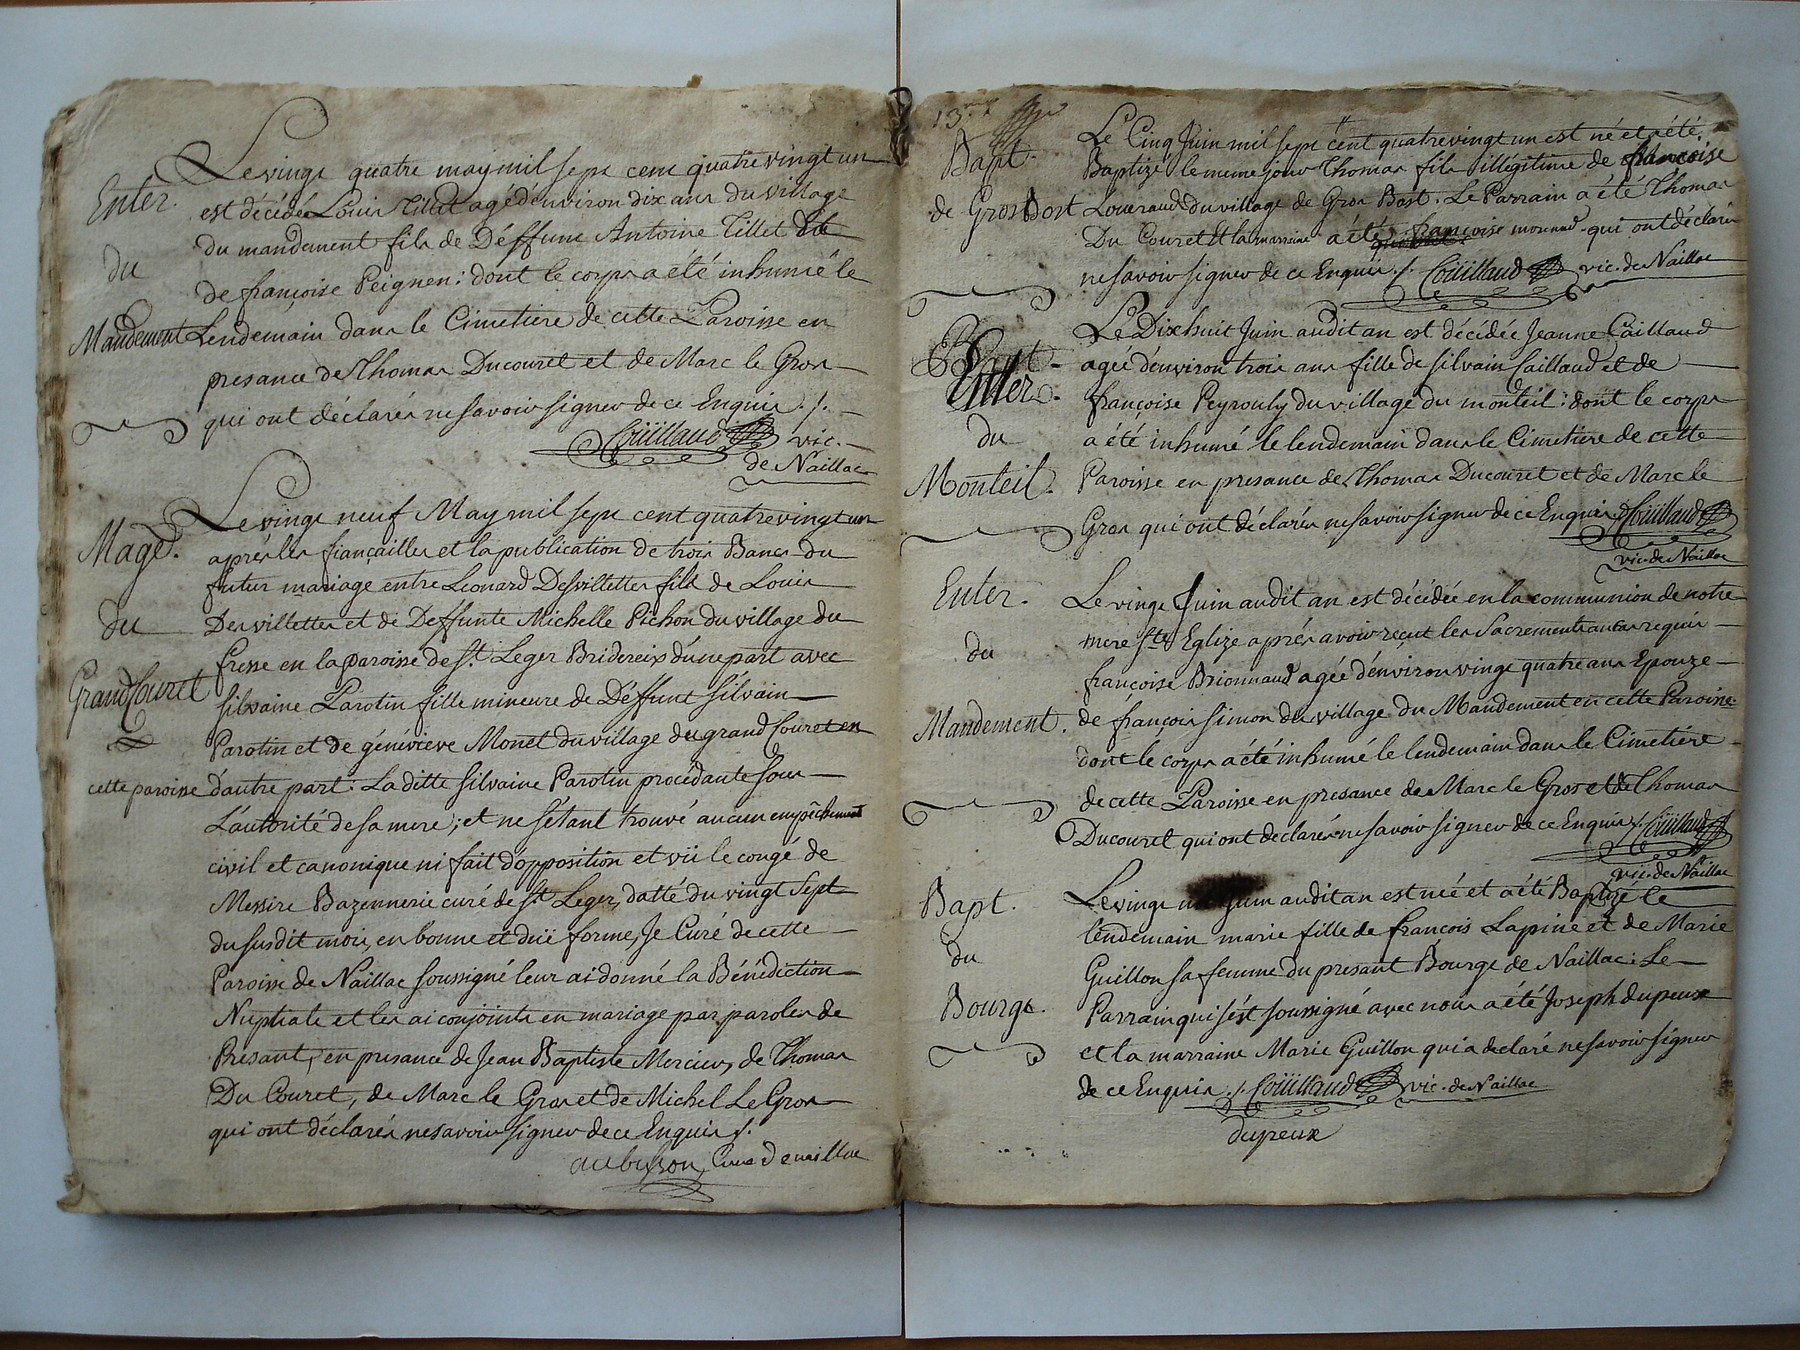 Enter.
du
Mandement
Le vingt quatre may mil sept cent quatre vingt un
est décédé Loüis Tillet agé d'environ dix ans du village
du mandement fils de Déffunt Antoine Tillet et de
de françoise Peignen: dont le corps a été inhumé le
Lendemain dans le Cimetiere de cette Paroisse en
presance de Thomas Ducouret et de Marc le Gros
qui ont déclarés ne savoir signer de ce Enquis ./.
Coüillaud vic.
de Naillac
Mage.
du
Grand Couret
cette paroisse
Le vingt neuf May mil sept cent quatre vingt un
aprés les fiançailles et la publication de trois Bancs du
futur mariage entre Leonard Desvillettes fils de Louis
Desvillettes et de Deffunte Michelle Pichon du village du
fresse en la paroisse de St. Leger Bridereix d'une part avec
silvaine Parotin fille mineure de Déffunt silvain
Parotin et de généviève Monet du village du grand Couret en
d'autre part: La ditte silvaine Parotin procedante sous
L'autorité de sa mere; et ne s'étant trouvé aucun empêchement
civil et canonique ni fait d'opposition et vü le congé de
Messire Bazennerie curé de St. Leger, datté du vingt Sept
du susdit mois, en bonne et duë forme, Je Curé de cette
Paroisse de Naillac soussigné leur ai donné la Bénédiction
Nuptiale et les ai conjoints en mariage par paroles de
Présant, en presance de Jean Baptiste Mercier, de Thomas
Du Couret, de Marc le Gros et de Michel Le Gros
qui ont déclarés ne savoir signer de ce Enquis ./.
aubusson, Curé de naillac
13.
Bapt.
de Gros Bost
Le Cinq Juin mil sept cent quatre vingt un est né et a été
Baptizé le meme jour Thomas fils illégitime de françoise
Loueraud du village de Gros Bost. Le Parrain a été Thomas
Du Couret Et la marraine a été françoise morand qui ont déclarés
ne savoir signer de ce Enquis ./. Coüillaud vic. de Naillac
Bapt
Enter.
du
Monteil.
Le Dix huit Juin audit an est décédée Jeanne Caillaud
agée d'environ trois ans fille de silvain Caillaud et de
françoise Peyrouly du village du monteil: dont le corps
a été inhumé le lendemain dans le Cimetiere de cette
Paroisse en presance de Thomas Ducouret et de Marc le
Gros qui ont déclarés ne savoir signer de ce Enquis Coüillaud
vic. de Naillac
Enter.
du
Mandement.
Le vingt Juin audit an est décédée en la communion de notre
mere Ste. Eglize aprés avoir reçut les Sacrements au cas requis
françoise Brionnaud agée d'environ vingt quatre ans Epouze
de françois simon du village du Mandement en cette Paroisse
dont le corps a été inhumé le lendemain dans le Cimetiére
de cette Paroisse en presance de Marc le Gros et de Thomas
Ducouret qui ont declarés ne savoir signer de ce Enquis ./. Coüillaud
vic. de Naillac
Bapt.
du
Bourgt.
Le vingt Juin audit an est née et a été Baptizé le
lendemain marie fille de françois Lapine et de Marie
Guillon sa femme du presant Bourgt de Naillac: Le
Parrain qui s'est soussigné avec nous a été Joseph dupeux
et la marraine Marie Guillon qui a declaré ne savoir signer
de ce Enquis ./. Coüillaud vic. de Naillac
dupeux